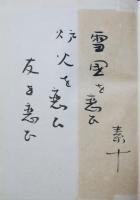 雪国を恋ひ
炉火を恋ひ
友を恋ひ
素十